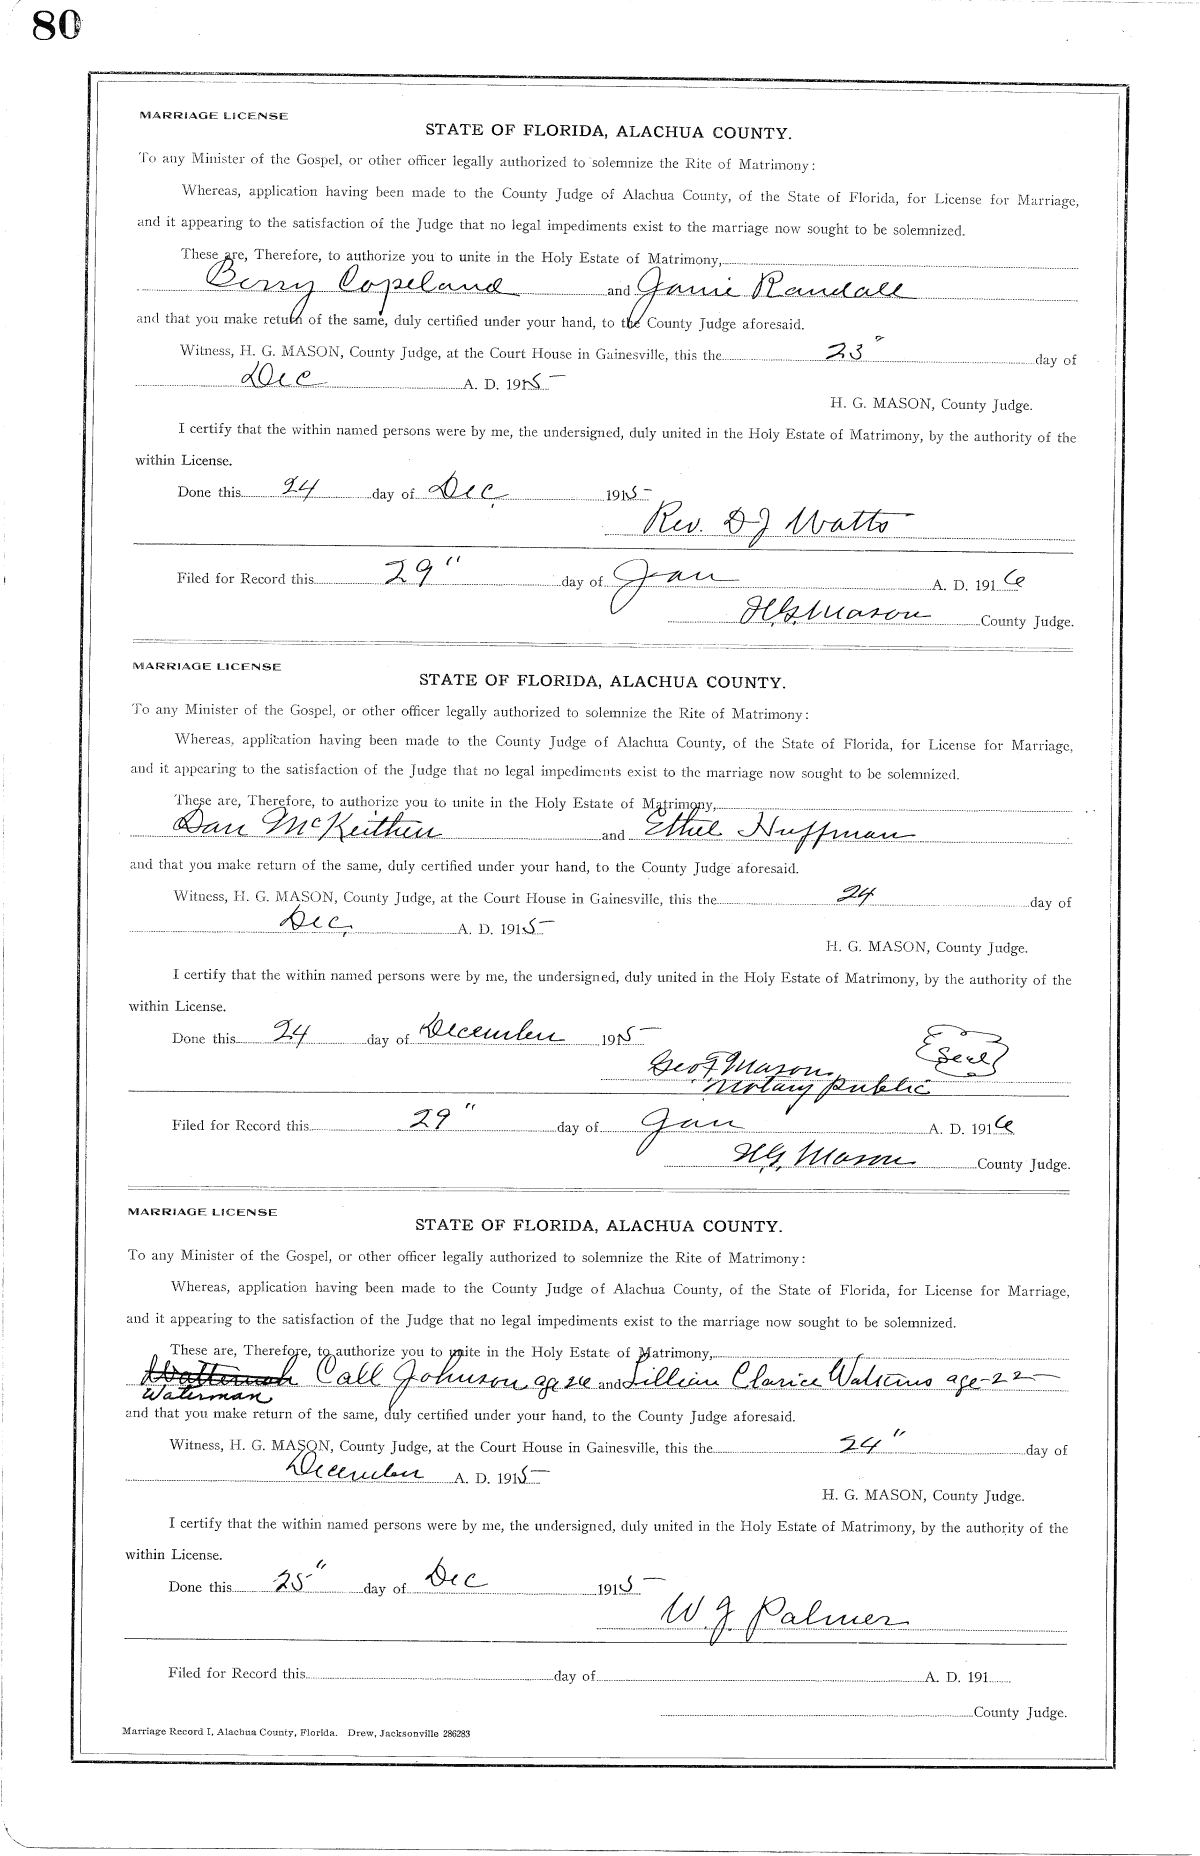 80
MARRIAGE LICENSE
STATE OF FLORIDA, ALACHUA COUNTY.
To any Minister of the Gospel, or other officer legally authorized to solemnize the Rite of Matrimony:
Whereas, application having been made to the County Judge of Alachua County, of the State of Florida, for License for Marriage,
and it appearing to the satisfaction of the Judge that no legal impediments exist to the marriage now sought to be solemnized.
These are, Therefore, to authorize you to unite in the Holy Estate of Matrimony,
Berry Copeland and Janie Randall
and that you make return of the same, duly certified under your hand, to the County Judge aforesaid.
Witness, H. G. MASON, County Judge, at the Court House in Gainesville, this the 23" day of
Dec A. D. 1915
H. G. MASON, County Judge.
I certify that the within named persons were by me, the undersigned, duly united in the Holy Estate of Matrimony, by the authority of the
within License.
Done this 24 day of Dec. 1915
Rev. D J Watts
Filed for Record this 29" day of Jan A. D. 1916
H.G. Mason County Judge.
MARRIAGE LICENSE
STATE OF FLORIDA, ALACHUA COUNTY.
To any Minister of the Gospel, or other officer legally authorized to solemnize the Rite of Matrimony:
Whereas, application having been made to the County Judge of Alachua County, of the State of Florida, for License for Marriage,
and it appearing to the satisfaction of the Judge that no legal impediments exist to the marriage now sought to be solemnized.
These are, Therefore, to authorize you to unite in the Holy Estate of Matrimony,
Dan McKeithen and Ethel Huffman
and that you make return of the same, duly certified under your hand, to the County Judge aforesaid.
Witness, H. G. MASON, County Judge, at the Court House in Gainesville, this the 24 day of
Dec. A. D. 1915
H. G. MASON, County Judge.
I certify that the within named persons were by me, the undersigned, duly united in the Holy Estate of Matrimony, by the authority of the
within License.
Done this 24 day of December 1915
Geo F Mason Seal
Notary Public
Filed for Record this 29" day of Jan A. D. 1916
H.G. Mason County Judge.
MARRIAGE LICENSE
STATE OF FLORIDA, ALACHUA COUNTY.
To any Minister of the Gospel, or other officer legally authorized to solemnize the Rite of Matrimony:
Whereas, application having been made to the County Judge of Alachua County, of the State of Florida, for License for Marriage,
and it appearing to the satisfaction of the Judge that no legal impediments exist to the marriage now sought to be solemnized.
These are, Therefore, to authorize you to unite in the Holy Estate of Matrimony,
Call Johnson age 26 and Lillian Clarice Watkins age 22
Waterman
and that you make return of the same, duly certified under your hand, to the County Judge aforesaid.
Witness, H. G. MASON, County Judge, at the Court House in Gainesville, this the 24" day of
December A. D. 1915
H. G. MASON, County Judge.
I certify that the within named persons were by me, the undersigned, duly united in the Holy Estate of Matrimony, by the authority of the
within License.
Done this 25" day of Dec 1915
W. J. Palmer
Filed for Record this day of A. D. 191
County Judge.
Marriage Record I, Alachua County, Florida. Drew, Jacksonville 286283